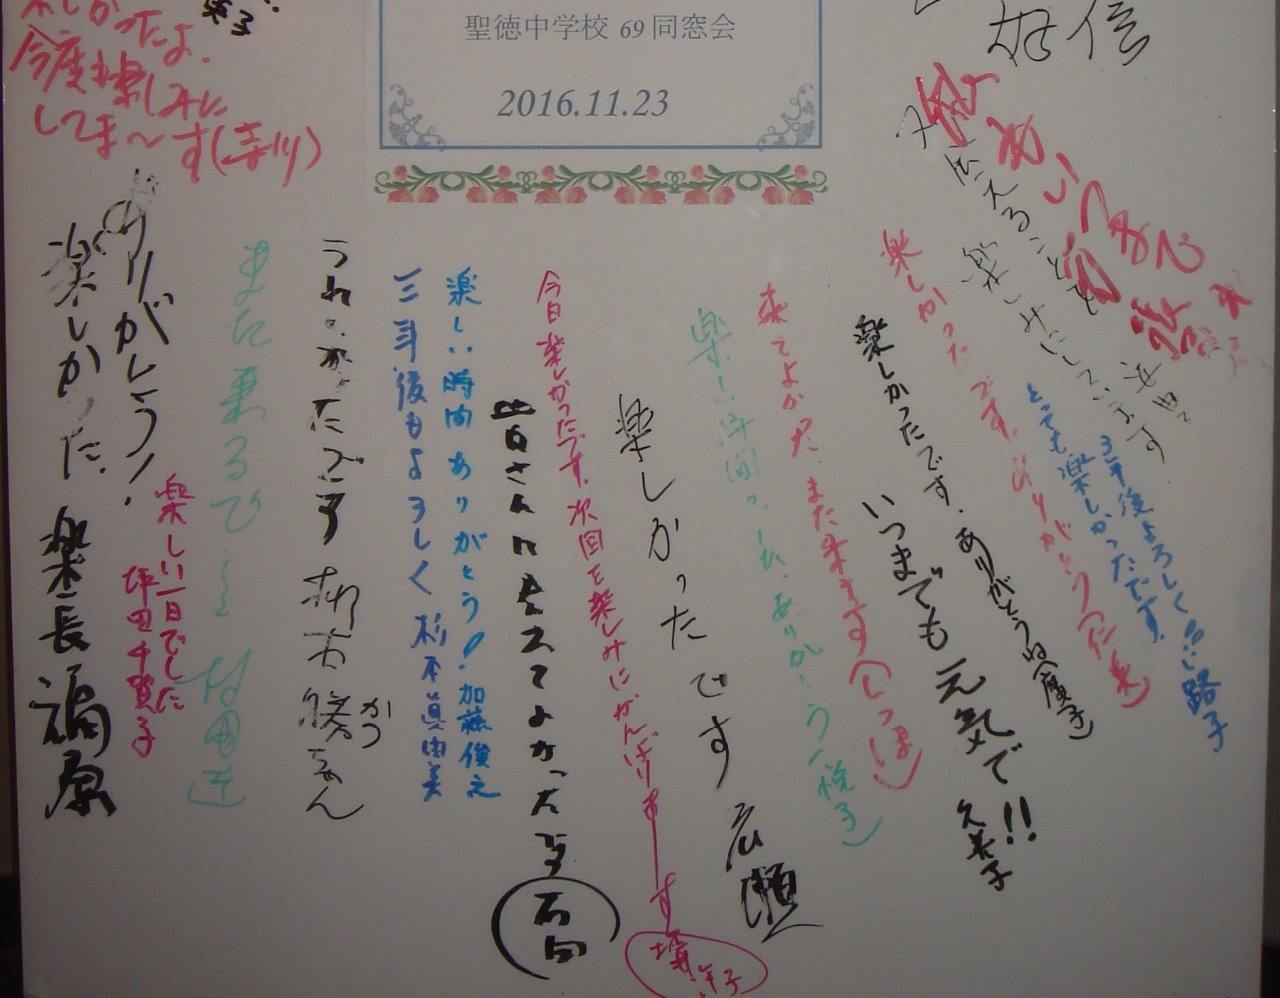 聖徳中学校 69 同窓会
2016.11.23
しかったよ.
今度も楽しみに
してま〜す(寺川)
3年後よろしく!! 路子
とても楽しかったです。
楽しみにしています
楽しかったです。ありがとう
楽しかったです. ありがとうね(慶子)
いつまでも元気で!! 久美子
来てよかった. また来ます(しっぽ)
楽しい時間 ありがとう(悦子)
楽しかったです 広瀬
今日楽しかったです。次回を楽しみにがんばりまーす
皆さんに会えてよかったです
楽しい時間ありがとう! 加藤俊之
三年後もよろしく 杉本眞由美
うれしかったです 勝ちゃん
かつ
また来るでー
楽しい一日でした
坪田千賀子
ありがとう!
楽しかった. 楽長 福原